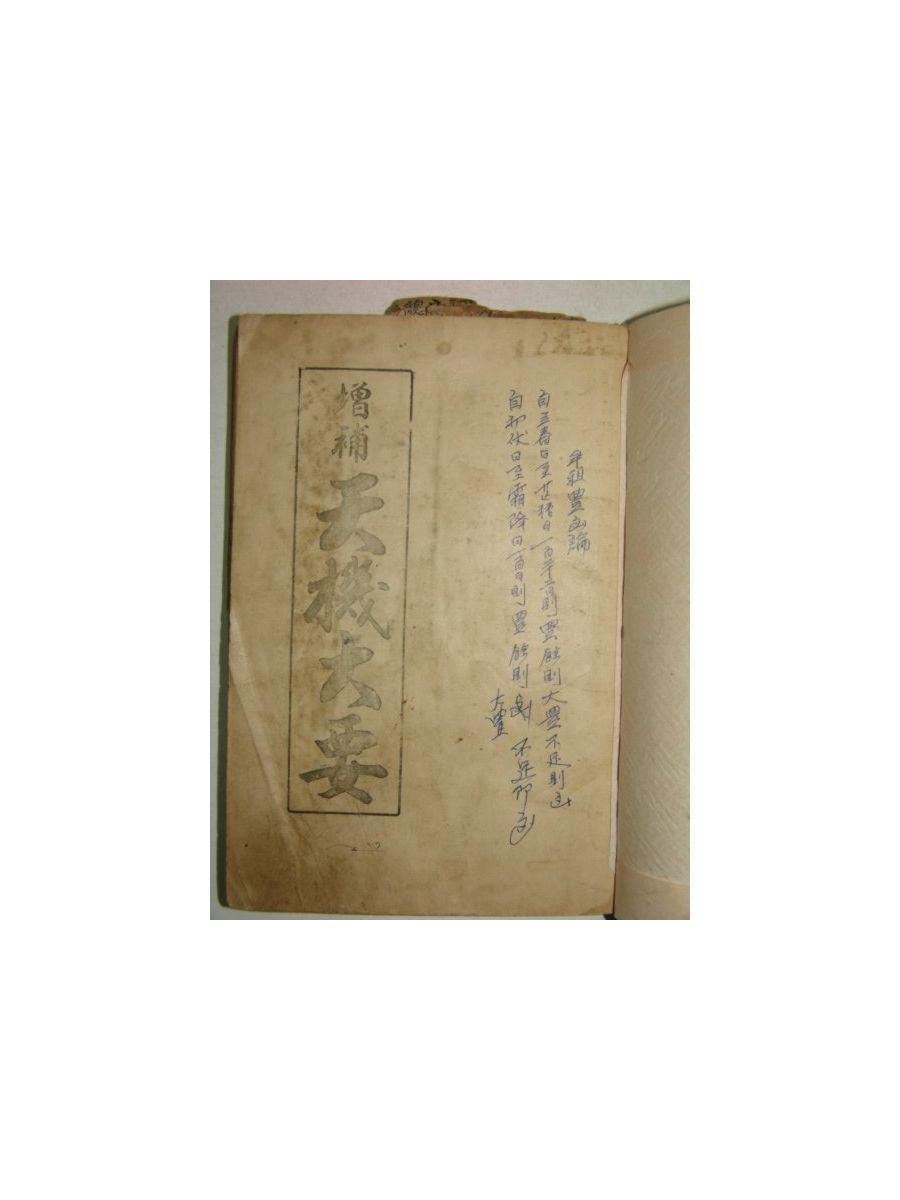 年租豊凶論
自立春日至芒種日一百二十二日則豊餘則大豊不足則凶
自初伏日至霜降日一百日則豊餘則
大豊
不足即凶
增補
天機大要